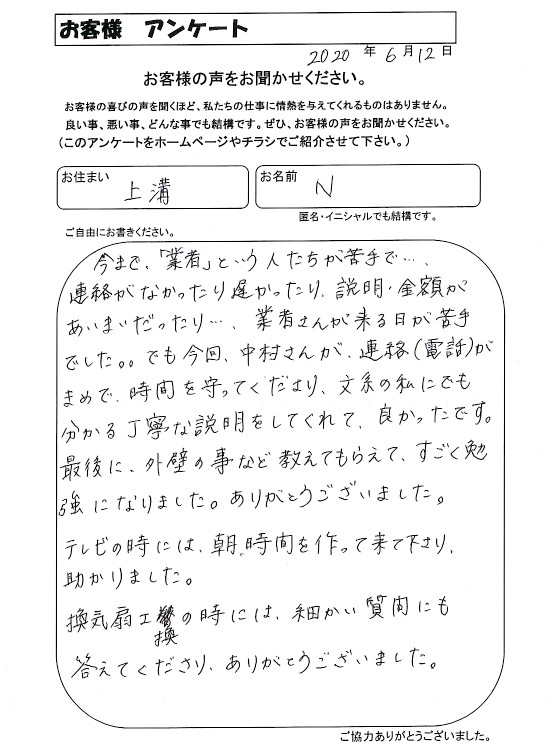 お客様 アンケート
2020 年 6 月 12 日
お客様の声をお聞かせください。
お客様の喜びの声を聞くほど、私たちの仕事に情熱を与えてくれるものはありません。
良い事、悪い事、どんな事でも結構です。ぜひ、お客様の声をお聞かせください。
(このアンケートをホームページやチラシでご紹介させて下さい。)
お住まい 上溝
お名前 N
匿名・イニシャルでも結構です。
ご自由にお書きください。
今まで、「業者」という人たちが苦手で…、
連絡がなかったり遅かったり、説明・金額が
あいまいだったり…、業者さんが来る日が苦手
でした。。でも今回、中村さんが、連絡(電話)が
まめで、時間を守ってくださり、文系の私にでも
分かる丁寧な説明をしてくれて、良かったです。
最後に、外壁の事など教えてもらえて、すごく勉
強になりました。ありがとうございました。
テレビの時には、朝、時間を作って来て下さり、
助かりました。
換気扇工の時には、細かい質問にも
換
答えてくださり、ありがとうございました。
ご協力ありがとうございました。